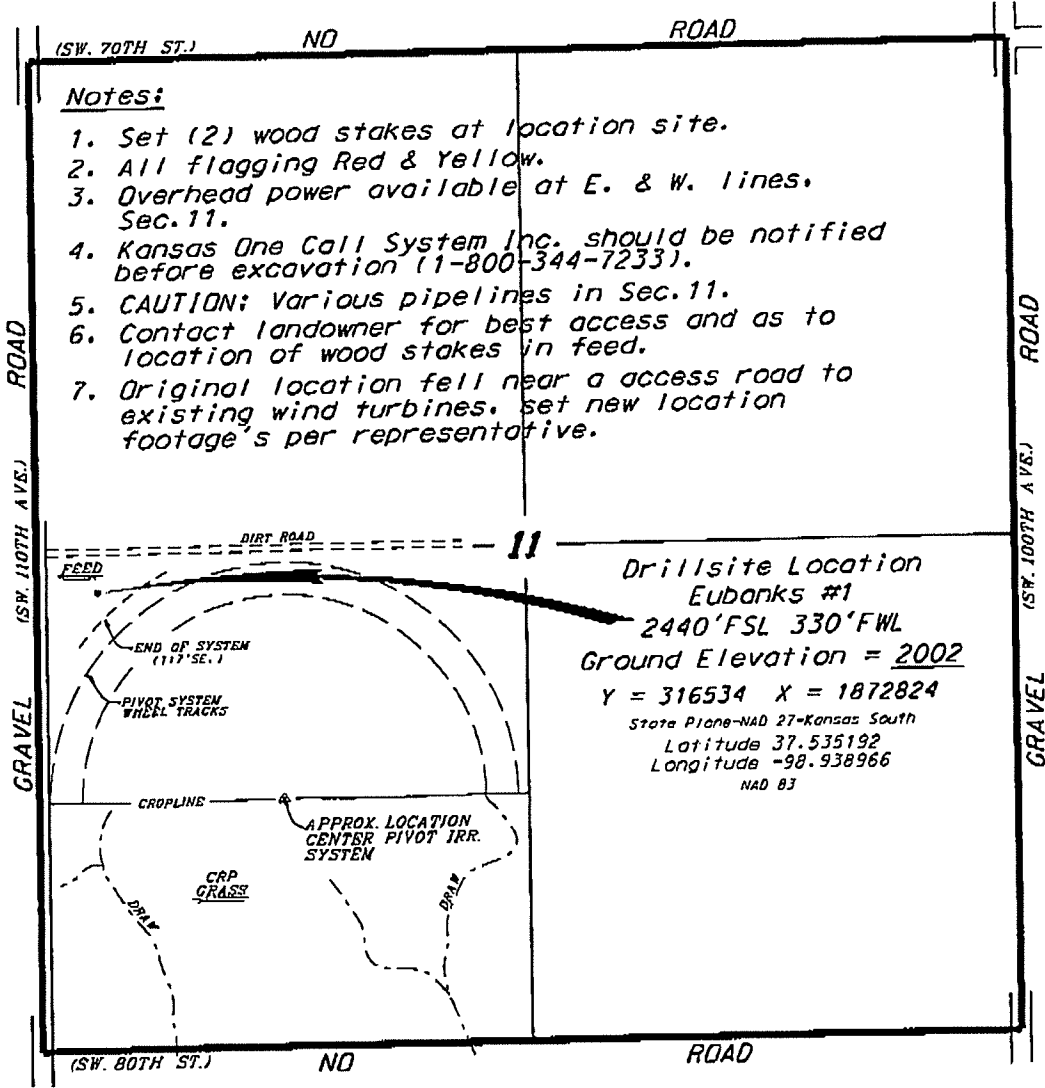 (SW. 70TH ST.) NO ROAD
Notes:
1. Set (2) wood stakes at location site.
2. All flagging Red & Yellow.
3. Overhead power available at E. & W. lines,
Sec. 11.
4. Kansas One Call System Inc. should be notified
before excavation (1-800-344-7233).
5. CAUTION: Various pipelines in Sec. 11.
6. Contact landowner for best access and as to
location of wood stakes in feed.
7. Original location fell near a access road to
existing wind turbines. set new location
footage's per representative.
GRAVEL (SW. 110TH AVE.) ROAD
GRAVEL (SW. 100TH AVE.) ROAD
DIRT ROAD
11
FEED
END OF SYSTEM
(117'SE.)
PIVOT SYSTEM
WHEEL TRACKS
Drillsite Location
Eubanks #1
2440'FSL 330'FWL
Ground Elevation = 2002
Y = 316534 X = 1872824
State Plane-NAD 27-Kansas South
Latitude 37.535192
Longitude -98.938966
NAD 83
CROPLINE
APPROX. LOCATION
CENTER PIVOT IRR.
SYSTEM
CRP
GRASS
DRAW
DRAW
(SW. 80TH ST.) NO ROAD